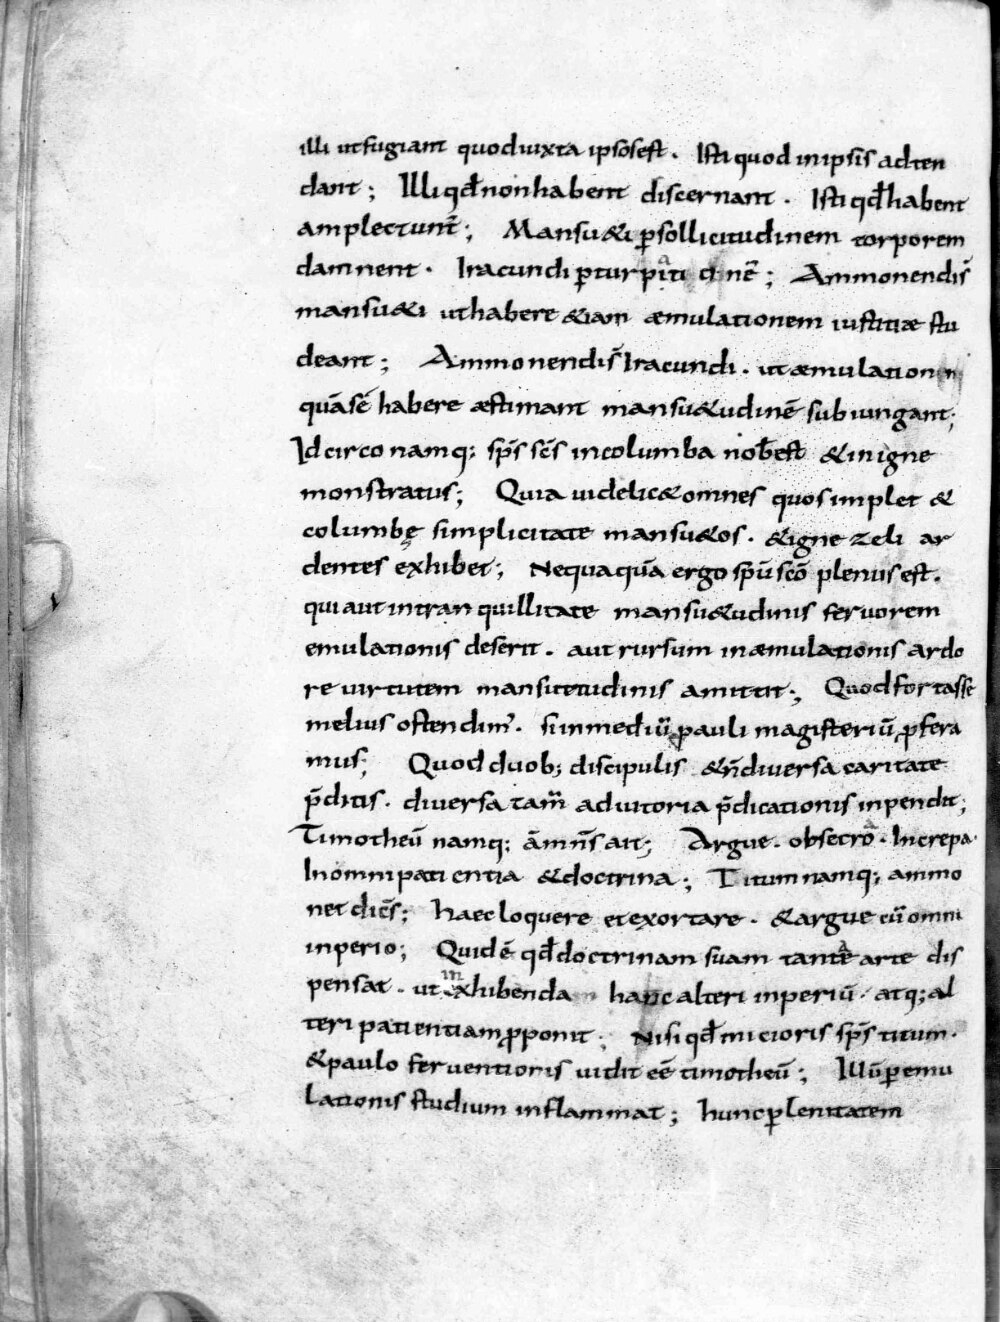 illi ut fugiant quod iuxta ipsos est. Isti quod in ipsis adten
dant; Illi qđ non habent discernant. Isti qđ habent
amplectunt̃; Mansu&i ꝑ sollicitudinem torporem
damnent. Iracundi ꝑturᵬationē; Ammonendis̃
mansu&i ut habere &iam æmulationem iustitiæ stu
deant; Ammonendis̃ Iracundi. ut æmulation
quā sē habere æstimant mansu&udinē subiungant;
Idcirco namq; sp̄s sc̄s in columba nob̄ est & in igne
monstratus; Quia uidelic& omnes quos implet &
columbę simplicitate mansu&os. & igne zeli ar
dentes exhibet; Nequaquā ergo sp̄u scō plenus est.
qui aut in tranquillitate mansu&udinis feruorem
emulationis deserit. aut rursum in æmulationis ardo
re uirtutem mansuetudinis amittit; Quod fortasse
melius ostendim̓. si in mediū pauli magisteriū ꝓfera
mus; Quod duob; discipulis & ñ diuersa caritate
p̄ditis. diuersa tam̄ adiutoria p̄dicationis inpendit;
Timotheū namq; āmn̄s ait; Argue. obsecra. Increpa.
In omni patientia & doctrina; Titum namq; ammo
net dicēs; haec loquere et exortare. & argue cū omni
inperio; Quid ē qđ doctrinam suam tanta arte dis
pensat. ut in exhibenda hanc alteri inperiū. atq; al
teri patientiam ꝓponit; Nisi qđ micioris sp̄s titum.
& paulo feruentioris uidit eē timotheū; Illū ꝑ emu
lationis studium inflammat; hunc ꝑ lenitatem